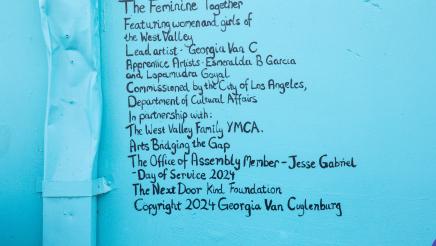 The Feminine Together
Featuring women and girls of
the West Valley
Lead artist - Georgia Van C
Apprentice Artists - Esmeralda B Garcia
and Lopamudra Goyal
Commissioned by the City of Los Angeles,
Department of Cultural Affairs
In partnership with:
The West Valley Family YMCA.
Arts Bridging the Gap
The Office of Assembly Member - Jesse Gabriel
- Day of Service 2024
The Next Door Kind Foundation
Copyright 2024 Georgia Van Cuylenburg